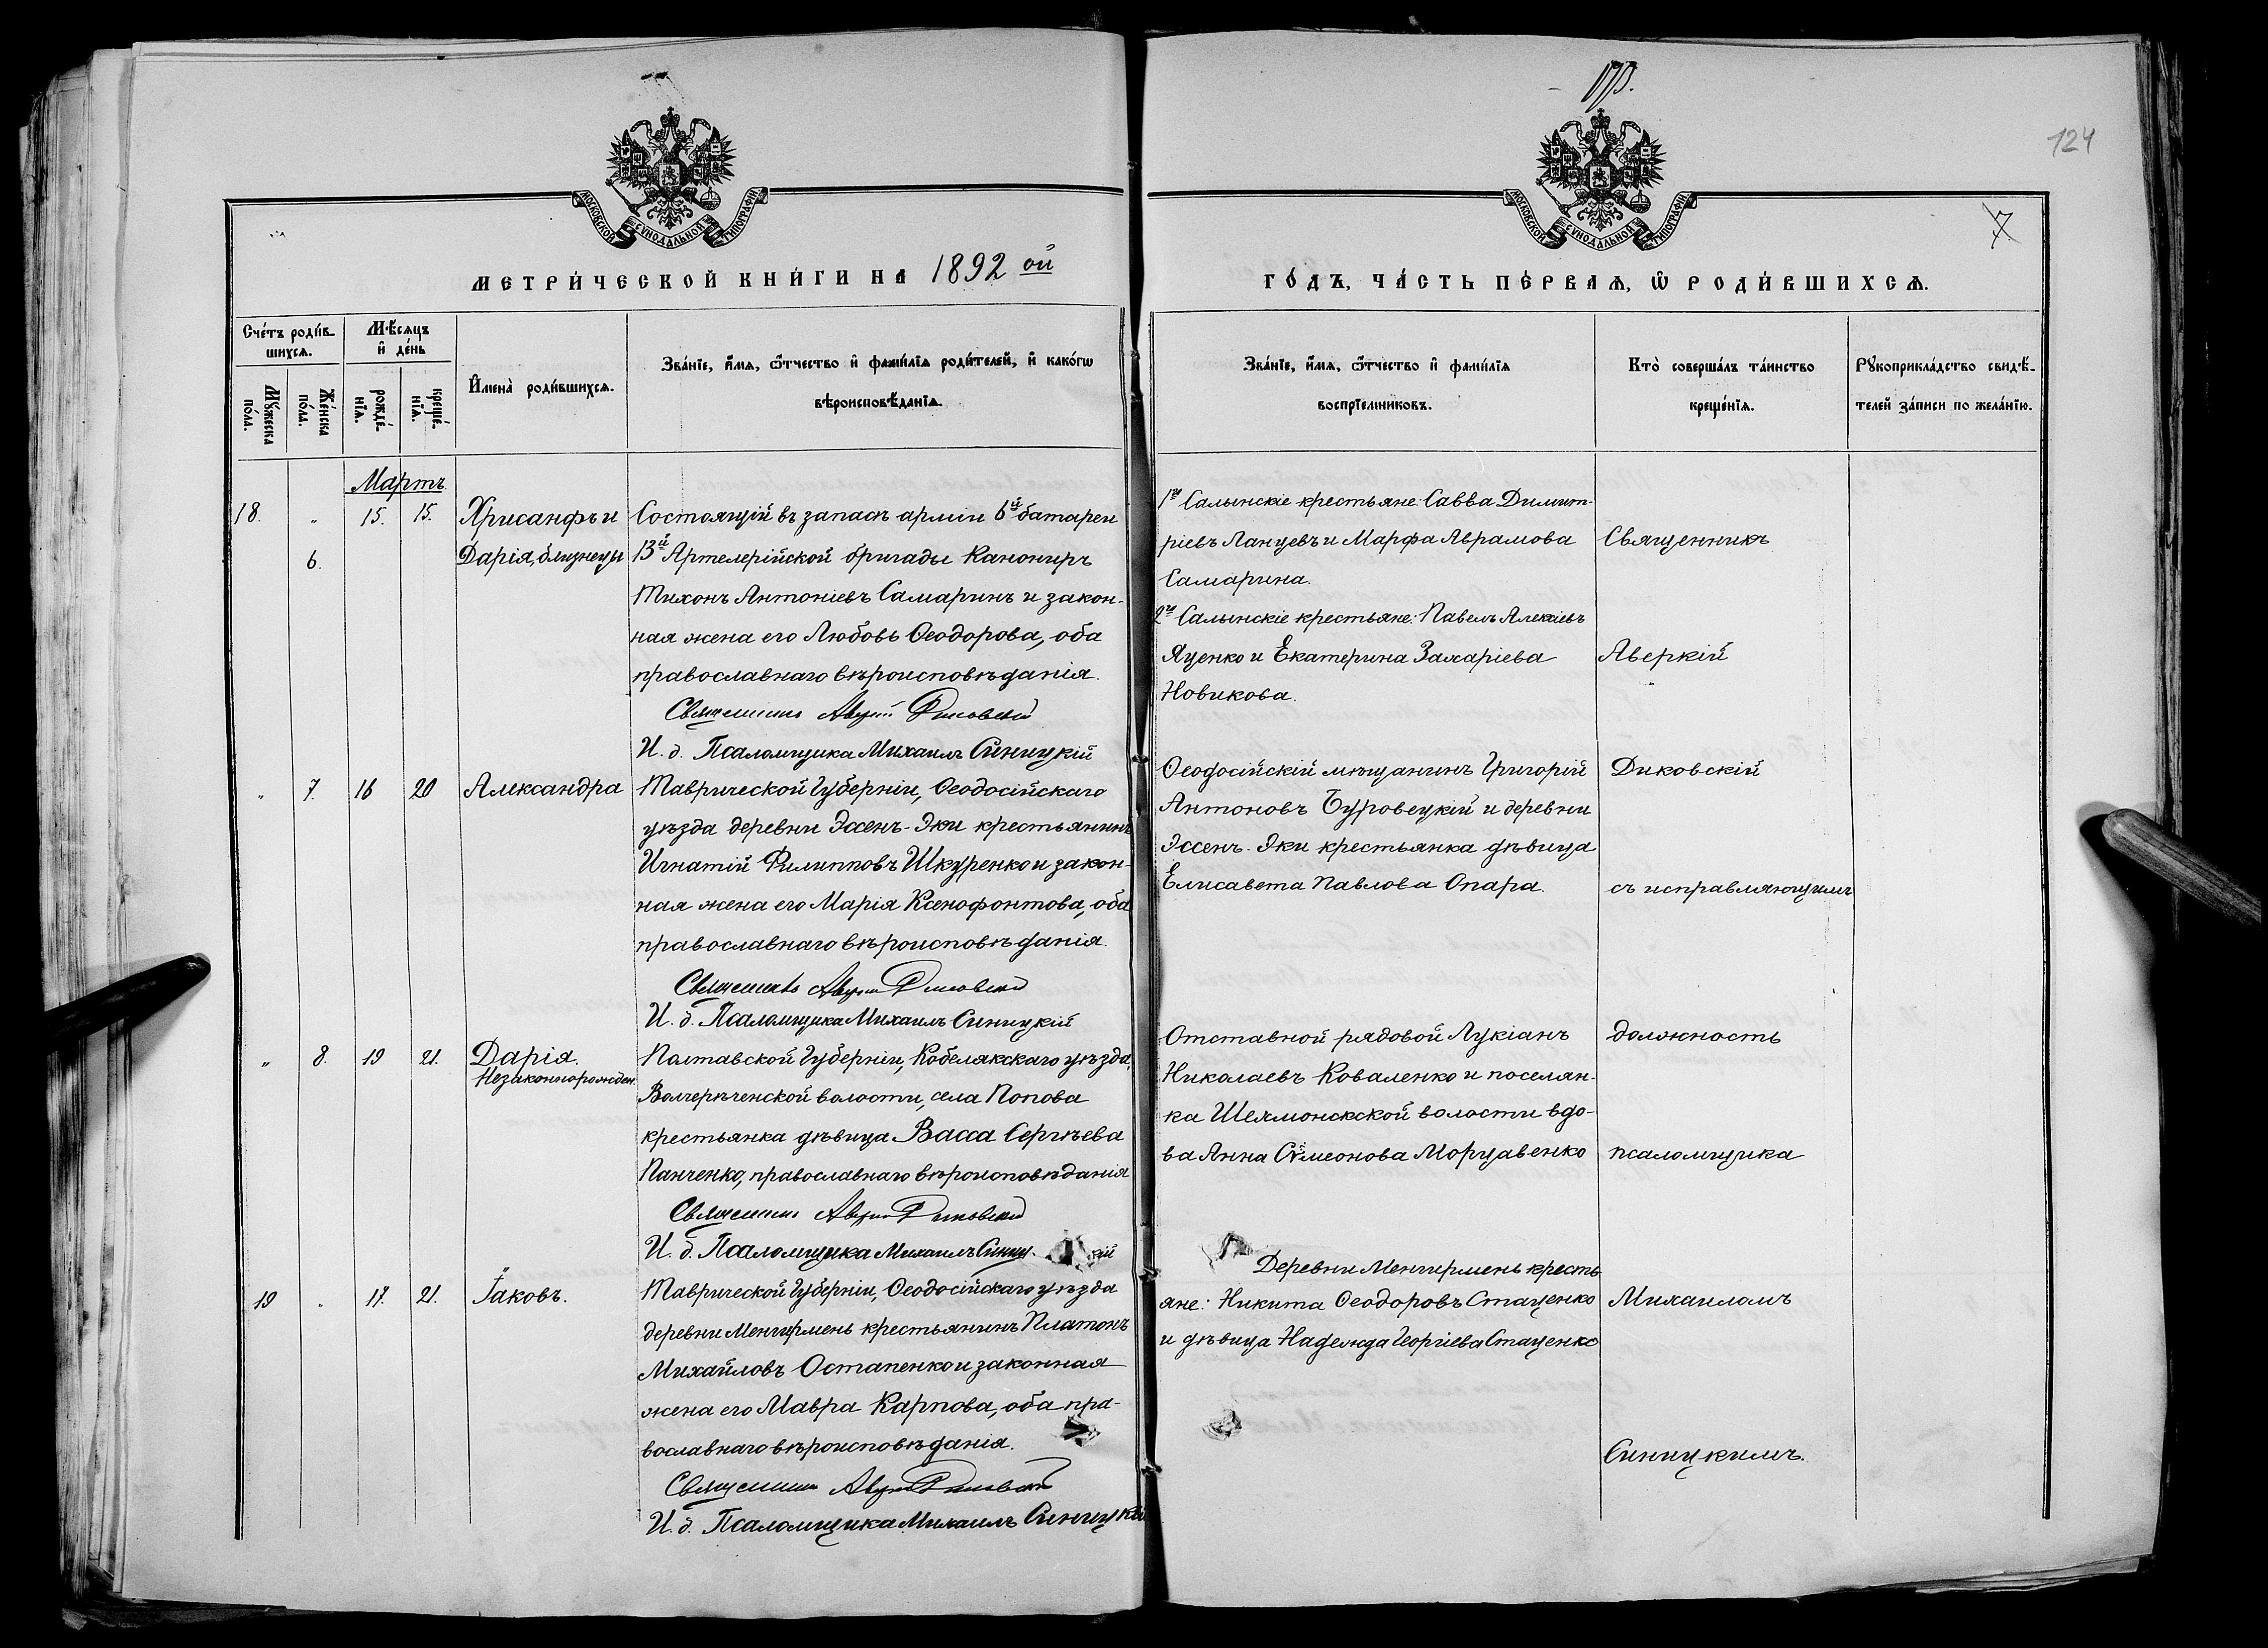 124
7
МОСКОВСКОЙ СѴНОДАЛЬНОЙ ТИПОГРАФІИ
МОСКОВСКОЙ СѴНОДАЛЬНОЙ ТИПОГРАФІИ
МЕТРИ́ЧЕСКОЙ КНИ́ГИ НА 1892 ой
ГО́ДЪ, ЧА́СТЬ ПЕ́РВАѦ, Ѡ҆ РОДИ́ВШИХСѦ.
Сче́тъ роди́в-
шихсѧ.
Мꙋ́жеска по́ла.
Же́нска по́ла.
Мѣ́сѧцъ
и҆ де́нь
рожде́-нїѧ.
креще́-нїѧ.
И҆мена̀ роди́вшихсѧ.
Зва́нїе, и҆́мѧ, ѻ҆́тчество и҆ фами́лїѧ роди́телей, и҆ како́гѡ
вѣроисповѣ́данїѧ.
Зва́нїе, и҆́мѧ, ѻ҆́тчество и҆ фами́лїѧ
воспрїе́мниковъ.
Кто̀ соверша́лъ та́инство
креще́нїѧ.
Рꙋкоприкла́дство свидѣ́-
телей за́писи по жела́нїю.
Мартъ.
18. " 15. 15. Хрисанфъ и
6. Дарія, близнецы
Состоящій въ запасѣ арміи 6й батареи
13й Артелерійской бригады Канониръ
Тихонъ Антоніевъ Самаринъ и закон-
ная жена его Любовь Ѳеодорова, оба
православнаго вѣроисповѣданія.
Священникъ Аверкій Диковскій
И. д. Псаломщика Михаилъ Синицкій
1го Салынскіе крестьяне: Савва Димит-
ріевъ Ланцевъ и Марфа Аврамова
Самарина.
2го Салынскіе крестьяне: Павелъ Алексіевъ
Яценко и Екатерина Захаріева
Новикова.
Священникъ
Аверкій
" 7. 16 20 Александра
Таврической Губерніи, Ѳеодосійскаго
уѣзда деревни Эссенъ-Эки крестьянинъ
Игнатій Филипповъ Шкуренко и закон-
ная жена его Марія Ксенофонтова, оба
православнаго вѣроисповѣданія.
Священникъ Аверкій Диковскій
И. д. Псаломщика Михаилъ Синицкій
Ѳеодосійскій мѣщанинъ Григорій
Антоновъ Буровецкій и деревни
Эссенъ-Эки крестьянка дѣвица
Елисавета Павлова Опара.
Диковскій
съ исправляющимъ
" 8. 19 21. Дарія.
Незаконнорожден.
Полтавской Губерніи, Кобелякскаго уѣзда,
Волчерѣченской волости, села Попова
крестьянка дѣвица Васса Сергѣева
Панченко, православнаго вѣроисповѣданія
Священникъ Аверкій Диковскій
И. д. Псаломщика Михаилъ Синицкій
Отставной рядовой Лукіанъ
Николаевъ Коваленко и поселян-
ка Шелмонскской волости вдо-
ва Анна Сѵмеонова Моруавенко
должность
псаломщика
19 " 17. 21. Іаковъ.
Таврической Губерніи, Ѳеодосійскаго уѣзда
деревни Менгермень крестьянинъ Платонъ
Михайловъ Остапенко и законная
жена его Мавра Карпова, оба пра-
вославнаго вѣроисповѣданія.
Священникъ Аверкій Диковскій
И. д. Псаломщика Михаилъ Синицкій
Деревни Менгермень кресть
яне: Никита Ѳеодоровъ Стаценко
и дѣвица Надежда Георгіева Стаценко
Михаиломъ
Синицкимъ.